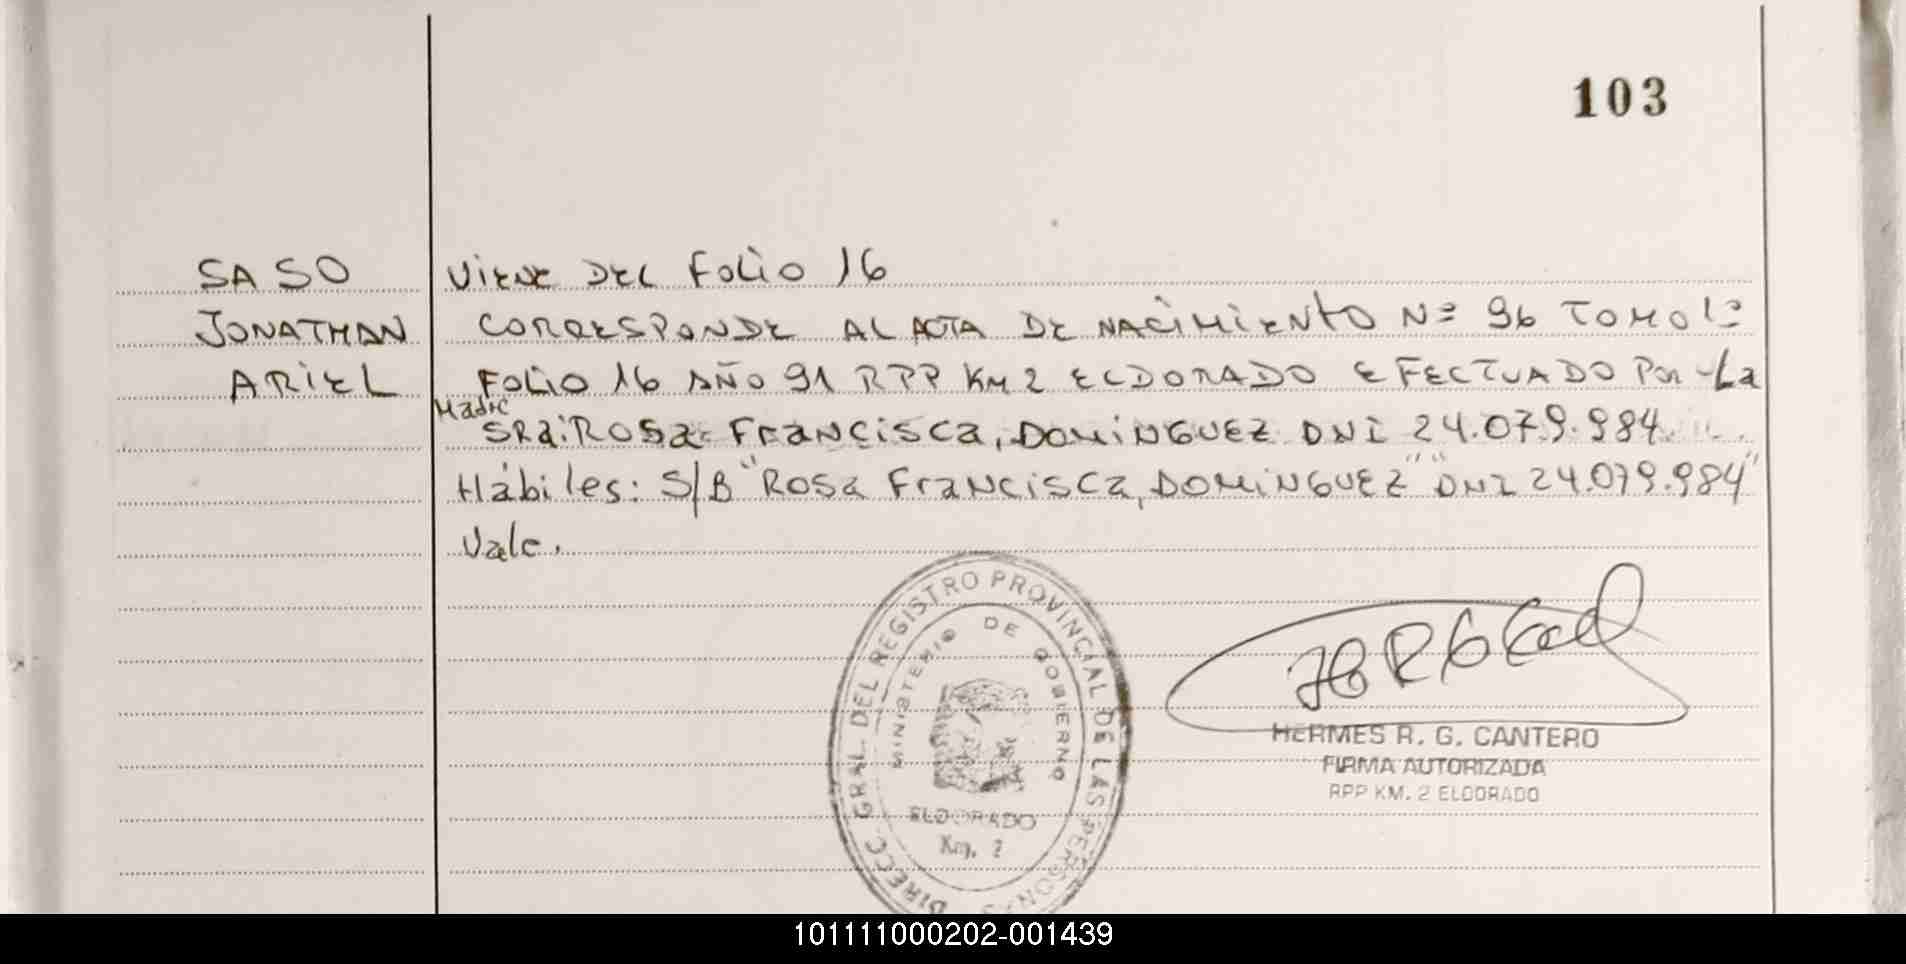 103
SASO
JONATHAN
ARIEL
Viene DEL Folio 16
CORRESPONDE AL ACTA DE NACIMIENTO Nº 96 TOMO 1º
FOLIO 16 AÑO 91 RPP KM 2 ELDORADO EFECTUADO Por La
Madre
SRa: ROSa FranCisca, DOMINGUEZ DNI 24.079.984.
Hábiles: S/B "ROSa FranCisCa, DOMINGUEZ" "DNI 24.079.984"
Vale.
DIRECC. GRAL. DEL REGISTRO PROVINCIAL DE LAS PERSONAS
MINISTERIO DE GOBIERNO
ELDORADO
Km. 2
HERMES R. G. CANTERO
FIRMA AUTORIZADA
RPP KM. 2 ELDORADO
101111000202-001439